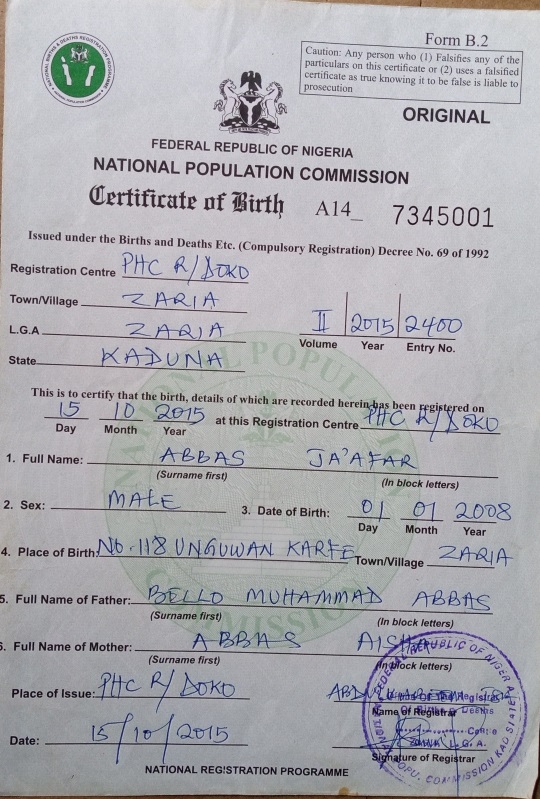 Form B.2
Caution: Any person who (1) Falsifies any of the
particulars on this certificate or (2) uses a falsified
certificate as true knowing it to be false is liable to
prosecution
ORIGINAL
FEDERAL REPUBLIC OF NIGERIA
NATIONAL POPULATION COMMISSION
Certificate of Birth A14_ 7345001
Issued under the Births and Deaths Etc. (Compulsory Registration) Decree No. 69 of 1992
Registration Centre PHC R/DOKO
Town/Village ZARIA
L.G.A ZARIA
II 2015 2400
Volume Year Entry No.
State KADUNA
This is to certify that the birth, details of which are recorded herein has been registered on
15 10 2015 at this Registration Centre PHC R/DOKO
Day Month Year
1. Full Name: ABBAS JA'AFAR
(Surname first) (In block letters)
2. Sex: MALE 3. Date of Birth: 01 01 2008
Day Month Year
4. Place of Birth: NO. 118 UNGUWAN KARFE Town/Village ZARIA
5. Full Name of Father: BELLO MUHAMMAD ABBAS
(Surname first) (In block letters)
6. Full Name of Mother: ABBAS AISHA
(Surname first) (In block letters)
Place of Issue: PHC R/DOKO
Name of Registrar
Date: 15/10/2015
L.G.A.
Signature of Registrar
NATIONAL REGISTRATION PROGRAMME